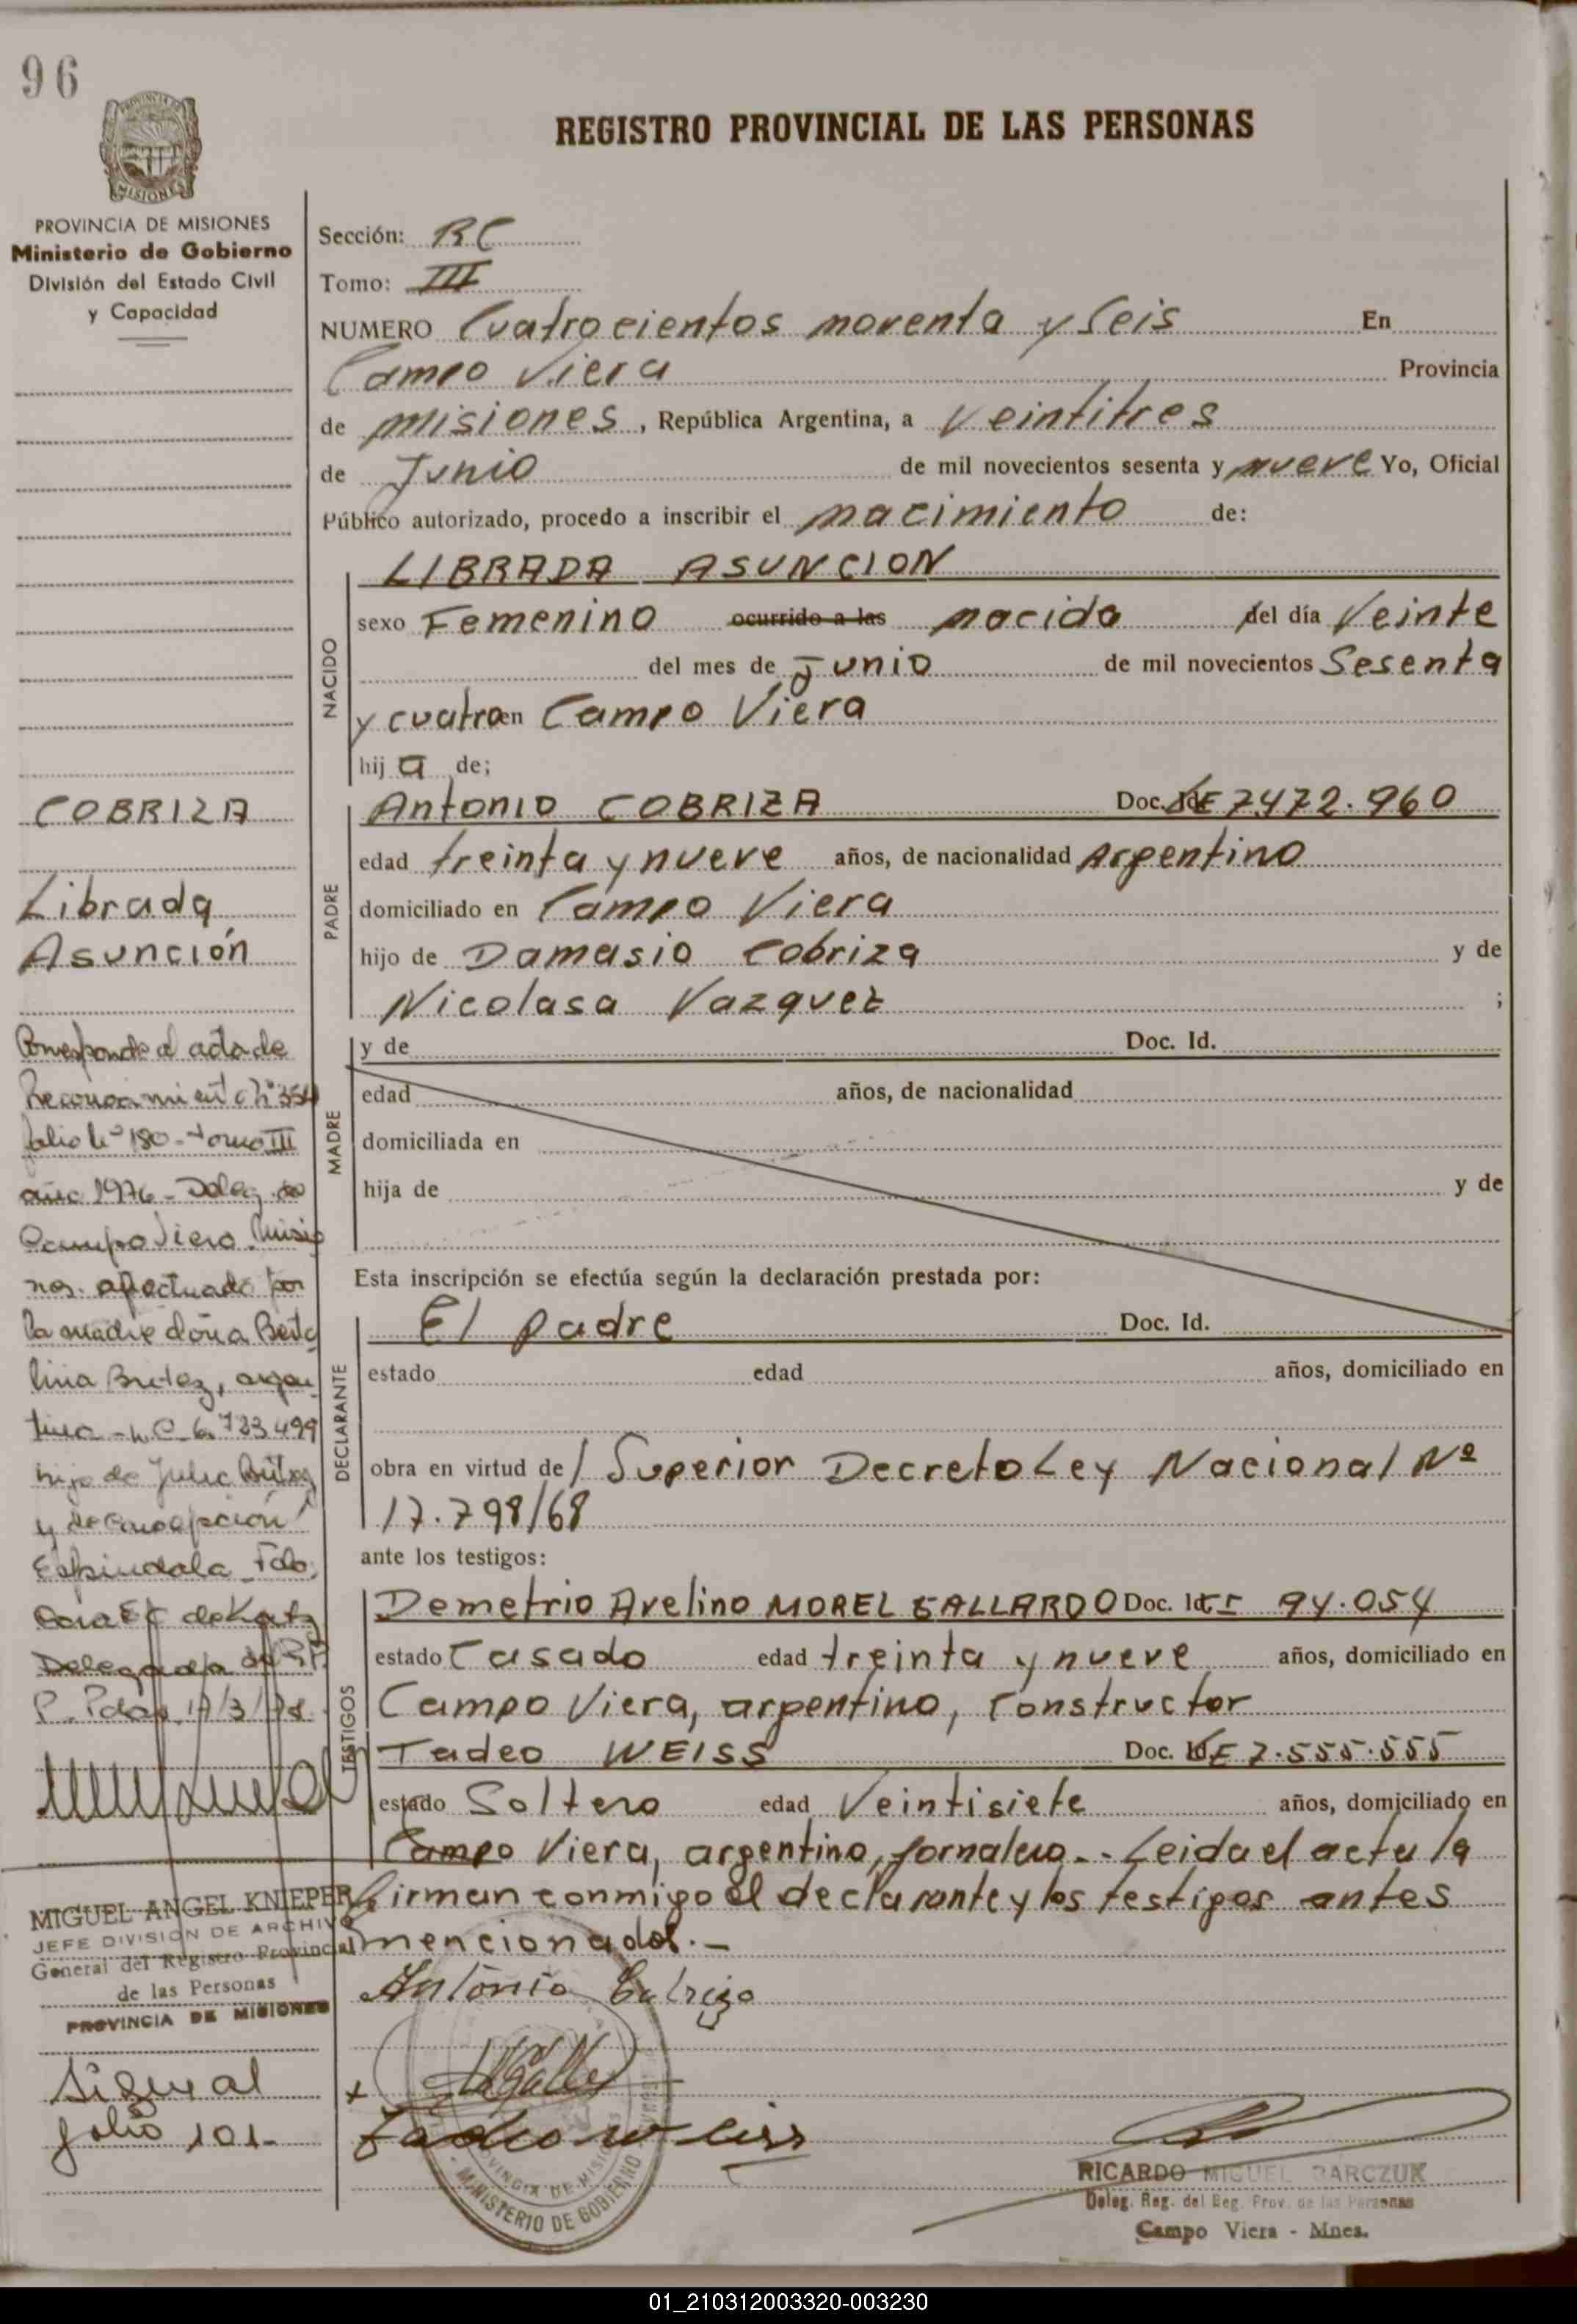 96
REGISTRO PROVINCIAL DE LAS PERSONAS
MISIONES
PROVINCIA DE MISIONES
Ministerio de Gobierno
División del Estado Civil
y Capacidad
Sección: RC
Tomo: III
NUMERO Cuatrocientos noventa y Seis En
Campo Viera Provincia
de misiones, República Argentina, a Veintitres
de Junio de mil novecientos sesenta y nueve Yo, Oficial
Público autorizado, procedo a inscribir el nacimiento de:
NACIDO
LIBRADA ASUNCION
sexo Femenino ocurrido a las nacida del día Veinte
del mes de Junio de mil novecientos Sesenta
y cuatro en Campo Viera
hij a de;
PADRE
Antonio COBRIZA Doc. Id. LE 7472.960
edad treinta y nueve años, de nacionalidad Argentino
domiciliado en Campo Viera
hijo de Damasio Cobriza y de
Nicolasa Vazquez ;
MADRE
y de Doc. Id.
edad años, de nacionalidad
domiciliada en
hija de y de
Esta inscripción se efectúa según la declaración prestada por:
DECLARANTE
El padre Doc. Id.
estado edad años, domiciliado en
obra en virtud de / Superior Decreto Ley Nacional Nº
17.798/68
ante los testigos:
TESTIGOS
Demetrio Avelino MOREL GALLARDO Doc. Id. CI 94.054
estado Casado edad treinta y nueve años, domiciliado en
Campo Viera, argentino, Constructor
Tadeo WEISS Doc. Id. LE 7.555.555
estado Soltero edad Veintisiete años, domiciliado en
Campo Viera, argentino, jornalero.- Leida el acta la
firman conmigo el declarante y los testigos antes
mencionados.-
Antonio Cobriza
Tadeo Weiss
PROVINCIA DE MISIONES
MINISTERIO DE GOBIERNO
RICARDO MIGUEL BARCZUK
Deleg. Reg. del Reg. Prov. de las Personas
Campo Viera - Mnes.
COBRIZA
Librada
Asunción
Corresponde al acta de
Reconocimiento Nº 354
folio Nº 180 - Tomo III
año 1976 - Deleg. de
Campo Viera. Misio
nes. efectuado por
la madre doña Berta
lina Britez, argen
tina - L.C. 6.733.499
hija de Julio Britez
y de Concepción
Espindola. Fdo.
de Katz
Delegada
P. Pdas 17/3/78
MIGUEL ANGEL KNIEPER
JEFE DIVISION DE ARCHIVO
General del Registro Provincial
de las Personas
PROVINCIA DE MISIONES
Sigue al
folio 101-
01_210312003320-003230